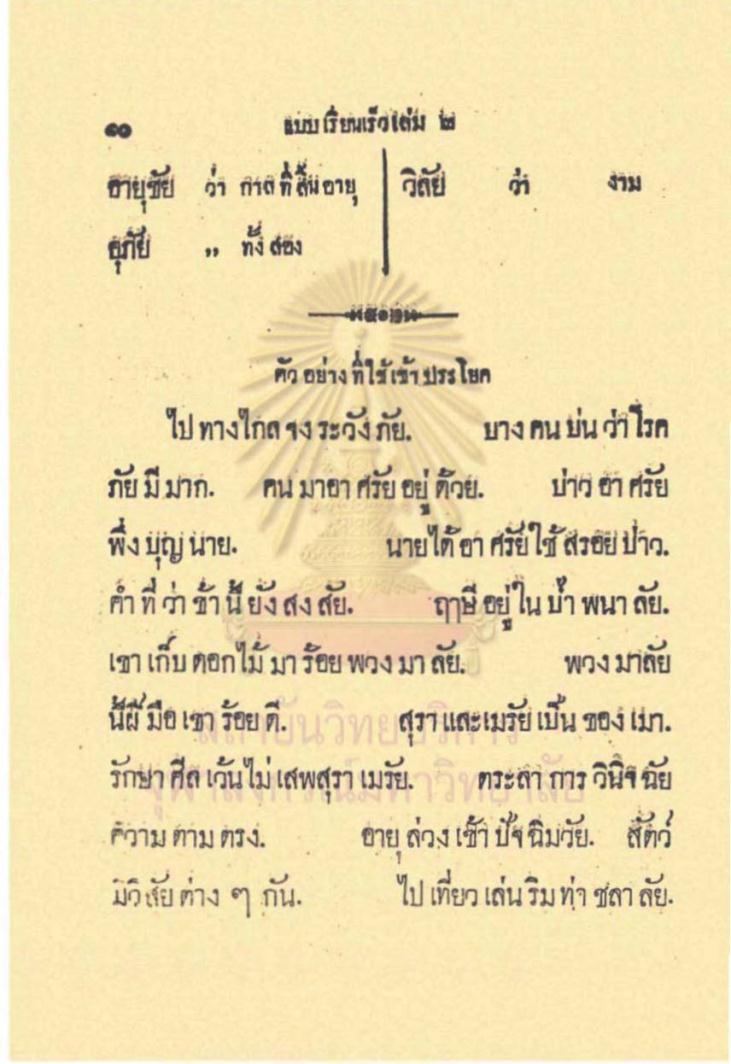 ๑๐ แบบเรียนเร็วเล่ม ๒
อายุขัย ว่า กาลที่สิ้นอายุ วิลัย ว่า งาม
อุภัย „ ทั้งสอง
ตัวอย่างที่ใช้เข้าประโยค
ไปทางไกลจงระวังภัย. บางคนบ่นว่าโรค
ภัยมีมาก. คนมาอาศรัยอยู่ด้วย. บ่าวอาศรัย
พึ่งบุญนาย. นายได้อาศรัยใช้สรอยบ่าว.
คำที่ว่าข้านี้ยังสงสัย. ฤๅษีอยู่ในป่าพนาลัย.
เขาเก็บดอกไม้มาร้อยพวงมาลัย. พวงมาลัย
นี้ฝีมือเขาร้อยดี. สุราและเมรัยเป็นของเมา.
รักษาศีลเว้นไม่เสพสุราเมรัย. ตระลาการวินิจฉัย
ความตามตรง. อายุล่วงเข้าปัจฉิมวัย. สัตว์
มีวิสัยต่าง ๆ กัน. ไปเที่ยวเล่นริมท่าชลาลัย.
สถาบันวิทยบริการ
จุฬาลงกรณ์มหาวิทยาลัย